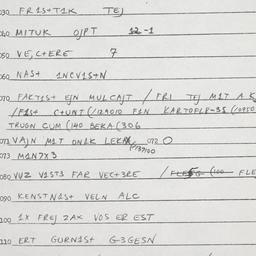 030 FR1S+T1K TEJ
040 MITUK OJPT 12-1
050 VE,C+ERE 7
060 NAS+ 1NCV1S+N
070 FAKT1S+ EJN MULCAJT / FRI TEJ M1T A
/F1S+ C+UNT (/129010 F1N KARTOFLR-35
TRUGN CUM (140 BEKA (306
071 VAJN M1T DN1K 072 O
073 M1N7X3
080 VVZ V1ST3 FAR VEC+3RE / (100 FLE
090 KENSTN1S+ VELN ALC
100 1X FREJ 2AX VOS ER EST
110 ERT GURN1S+ G3GESN